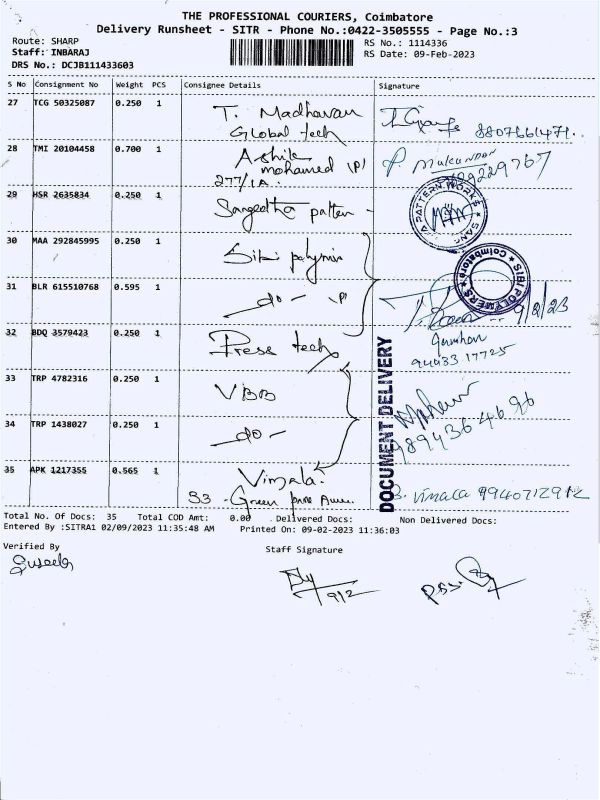 THE PROFESSIONAL COURIERS, Coimbatore
Delivery Runsheet - SITR - Phone No.:0422-3505555 - Page No.:3
Route: SHARP
RS No.: 1114336
Staff: INBARAJ
RS Date: 09-Feb-2023
DRS No.: DCJB111433603
S No Consignment No Weight PCS Consignee Details Signature
27 TCG 50325087 0.250 1 T. Madhavan
Global tech 8807661471
28 TMI 20104458 0.700 1 Ashik
mohamed (P) P. Mukundan
277/1A.
29 HSR 2635834 0.250 1 Sangeetha patten -
A PATTERN WORKS * SANG
30 MAA 292845995 0.250 1 Sibi polymin
SIBI POLYMERS * Coimbatore *
31 BLR 615510768 0.595 1 - do - (P) 9/2/23
32 BDQ 3579423 0.250 1 Press tech
94433 17725
33 TRP 4782316 0.250 1 VBB
34 TRP 1438027 0.250 1 - do -
9894364696
DOCUMENT DELIVERY
35 APK 1217355 0.565 1 Vimala
53 - Green B. Vimala 9940712912
Total No. Of Docs: 35 Total COD Amt: 0.00 Delivered Docs: Non Delivered Docs:
Entered By :SITRA1 02/09/2023 11:35:48 AM Printed On: 09-02-2023 11:36:03
Verified By
Staff Signature
9/2